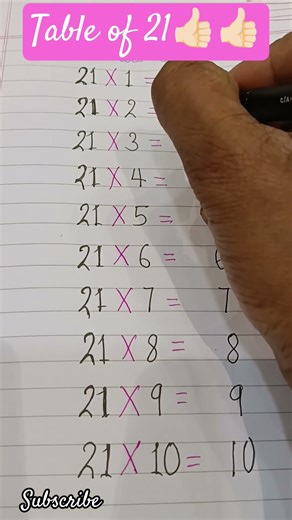 Table of 21👍🏻👍🏻
21 X 1 =
21 X 2 =
21 X 3 =
21 X 4 =
21 X 5 =
21 X 6 =
21 X 7 = 7
21 X 8 = 8
21 X 9 = 9
21 X 10 = 10
Subscribe